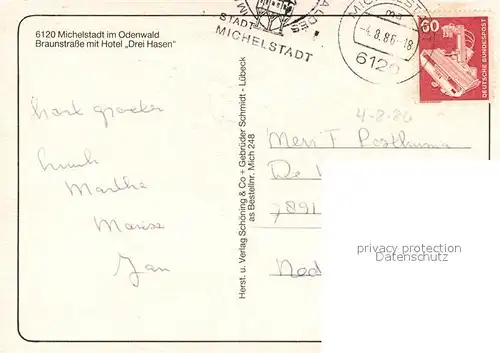 6120 Michelstadt im Odenwald
Braunstraße mit Hotel „Drei Hasen"
STADT
MICHELSTADT
MICHELST
ma
-4.8.86-18
6120
60
DEUTSCHE BUNDESPOST
4-8-86
hart
Martha
Jan
Herst. u. Verlag Schöning & Co + Gebrüder Schmidt - Lübeck
as Bestellnr. Mich 248
T Posthuma
De
7891
Ned
privacy protection
Datenschutz